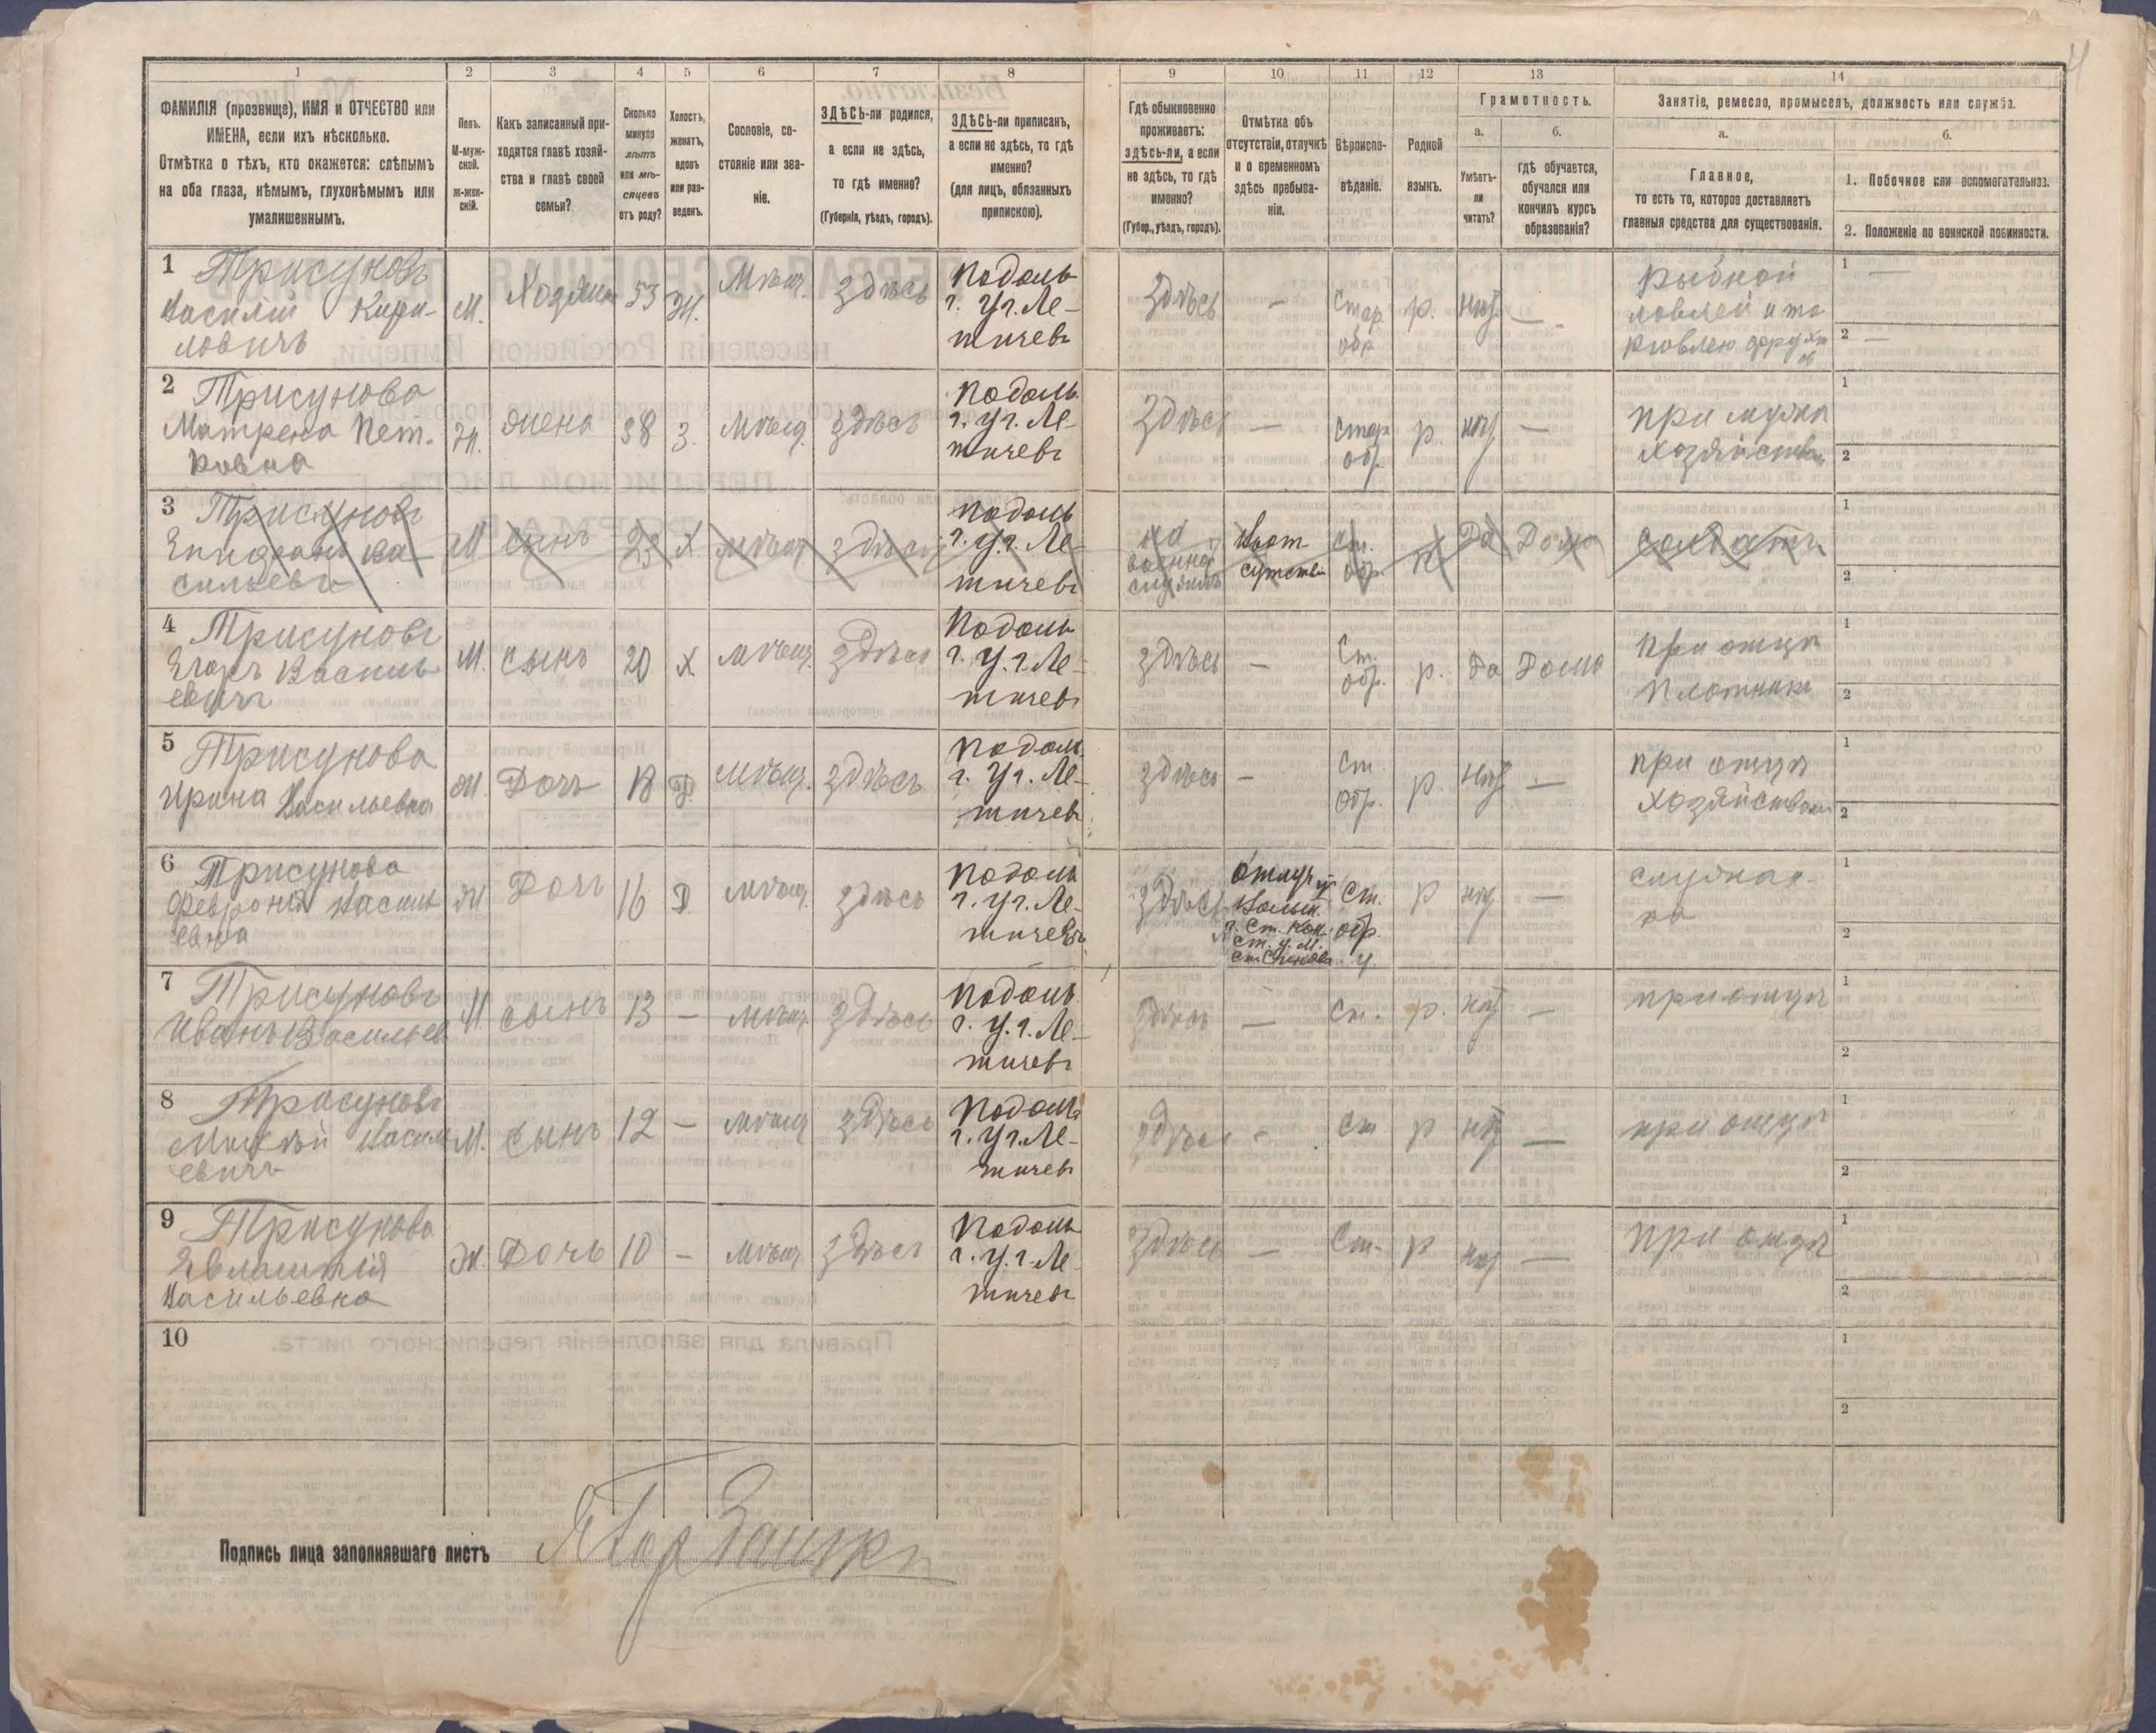 4
1 2 3 4 5 6 7 8 9 10 11 12 13 14
ФАМИЛІЯ (прозвище), ИМЯ и ОТЧЕСТВО или
ИМЕНА, если ихъ нѣсколько.
Отмѣтка о тѣхъ, кто окажется: слѣпымъ
на оба глаза, нѣмымъ, глухонѣмымъ или
умалишеннымъ.
Полъ.
М-муж-
ской.
Ж-жен-
скій.
Какъ записанный при-
ходится главѣ хозяй-
ства и главѣ своей
семьи?
Сколько
минуло
лѣтъ
или мѣ-
сяцевъ
отъ роду?
Холостъ,
женатъ,
вдовъ
или раз-
веденъ.
Сословіе, со-
стояніе или зва-
ніе.
ЗДѢСЬ-ли родился,
а если не здѣсь,
то гдѣ именно?
(Губернія, уѣздъ, городъ).
ЗДѢСЬ-ли приписанъ,
а если не здѣсь, то гдѣ
именно?
(для лицъ, обязанныхъ
припискою).
Гдѣ обыкновенно
проживаетъ:
здѣсь-ли, а если
не здѣсь, то гдѣ
именно?
(Губер., уѣздъ, городъ).
Отмѣтка объ
отсутствіи, отлучкѣ
и о временномъ
здѣсь пребыва-
ніи.
Вѣроиспо-
вѣданіе.
Родной
языкъ.
Грамотность.
а.
Умѣетъ-
ли
читать?
б.
гдѣ обучается,
обучался или
кончилъ курсъ
образованія?
Занятіе, ремесло, промыселъ, должность или служба.
а.
Главное,
то есть то, которое доставляетъ
главныя средства для существованія.
б.
1. Побочное или вспомогательное.
2. Положеніе по воинской повинности.
1 Трисуновъ
Василій Кири-
ловичъ
М.
Хозяинъ
53
Ж.
Мѣщ.
Здѣсь
Подоль
г. Уг. Ле-
тичевъ
Здѣсь
—
Стар
обр
р.
нѣт
—
рыбной
ловлей и то
рговлею фрукт
ов
1 —
2 —
2 Трисунова
Матрена Пет-
ровна
Ж.
жена
58
З.
Мѣщ.
здѣсь
Подоль
г. Уг. Ле-
тичевъ
Здѣсь
—
Стар
обр
р.
нѣт
—
при мужѣ
хозяйствам
1
2
3 Трисуновъ
Епифанъ Ва
сильевъ
М
сынъ
23
Х
мѣщ
здѣсь
Подоль
г. у. г. Ле-
тичевъ
на
военной
службѣ
В от
сутстви
Ст.
обр.
р
Да
Дома
солдатъ
1
2
4 Трисуновъ
Егоръ Василь
евичъ
М.
сынъ
20
Х
мѣщ.
Здѣсь
Подоль
г. У. г. Ле-
тичевъ
здѣсь
—
Ст.
обр.
р.
Да
Дома
При отцѣ
плотникъ
1
2
5 Трисунова
Ирина Васильевна
Ж.
Дочь
18
Д.
мѣщ.
здѣсь
Подоль
г. Уг. Ле-
тичевъ
здѣсь
—
Ст
обр.
р.
нѣт
—
при отцѣ
хозяйствам
1
2
6 Трисунова
Феврония Василь
евна
Ж
Дочь
16
Д.
мѣщ.
здѣсь
Подоль
г. Уг. Ле-
тичевъ
здѣсь
Отлуч
Волын.
г. Ст. Кон
ст. у. М.
Ст. Синява
Ст.
обр.
р
нѣт
—
служан-
ка
1
2
7 Трисуновъ
Иванъ Васильев
М
сынъ
13
—
мѣщ
Здѣсь
Подоль
г. У. г. Ле-
тичевъ
здѣсь
—
Ст.
р.
нѣт
—
при отцѣ
1
2
8 Трисуновъ
Василь
евичъ
М.
сынъ
12
—
мѣщ
здѣсь
Подоль
г. Уг. Ле-
тичевъ
здѣсь
-
Ст
р
нѣт
—
при отцѣ
1
2
9 Трисунова
Евлампія
Васильевна
Ж.
Дочь
10
—
мѣщ
здѣсь
Подоль
г. У. г. Ле-
тичевъ
здѣсь
—
Ст.
р
нѣт
—
при отцѣ
1
2
10
1
2
Подпись лица заполнявшаго листъ